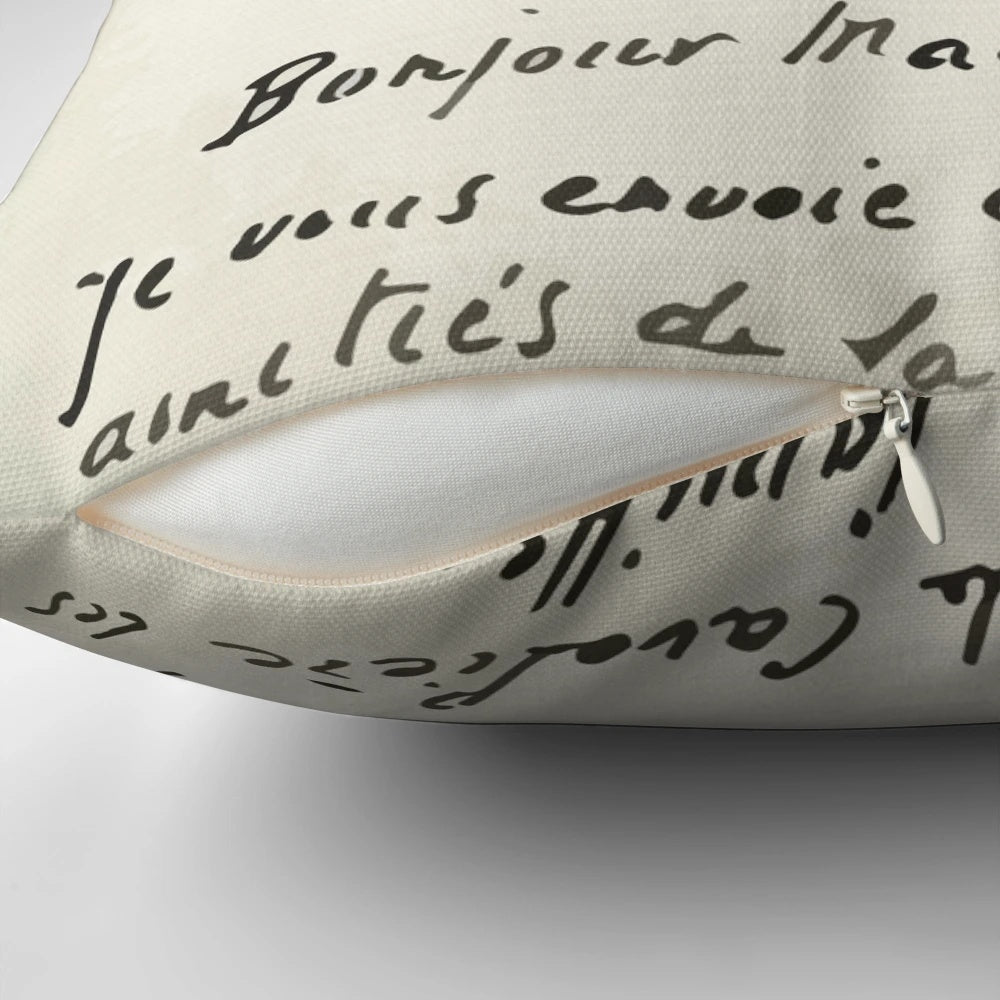 Bonjour Ma
je vous envoie
amitiés de la
famille
Cavalière les